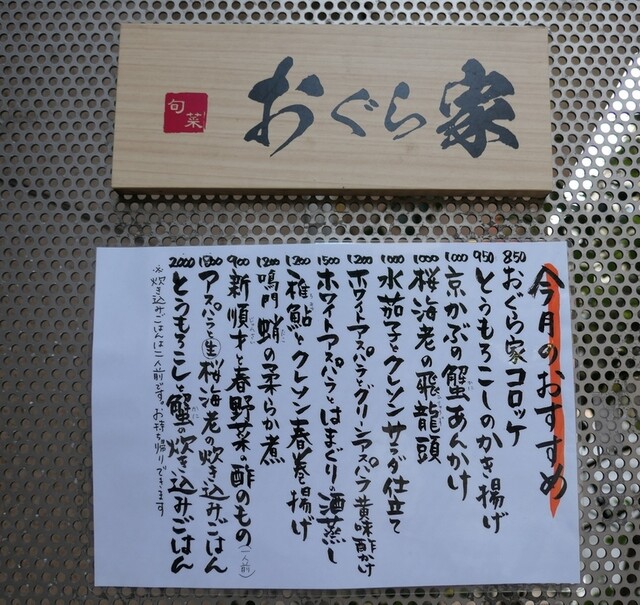 旬菜
おぐら家
今月のおすすめ
850 おぐら家コロッケ
950 とうもろこしのかき揚げ
1000 京かぶの蟹あんかけ
1000 桜海老の飛龍頭
1000 水茄子とクレソンサラダ仕立て
1200 ホワイトアスパラとグリーンアスパラ黄味酢かけ
1500 ホワイトアスパラとはまぐりの酒蒸し
1200 稚鮎とクレソン春巻揚げ
1200 鳴門蛸の柔らか煮
900 新順才と春野菜の酢のもの(一人前)
1800 アスパラと生桜海老の炊き込みごはん
2000 とうもろこしと蟹の炊き込みごはん
※炊き込みごはんは二人前です。お持ち帰りできます